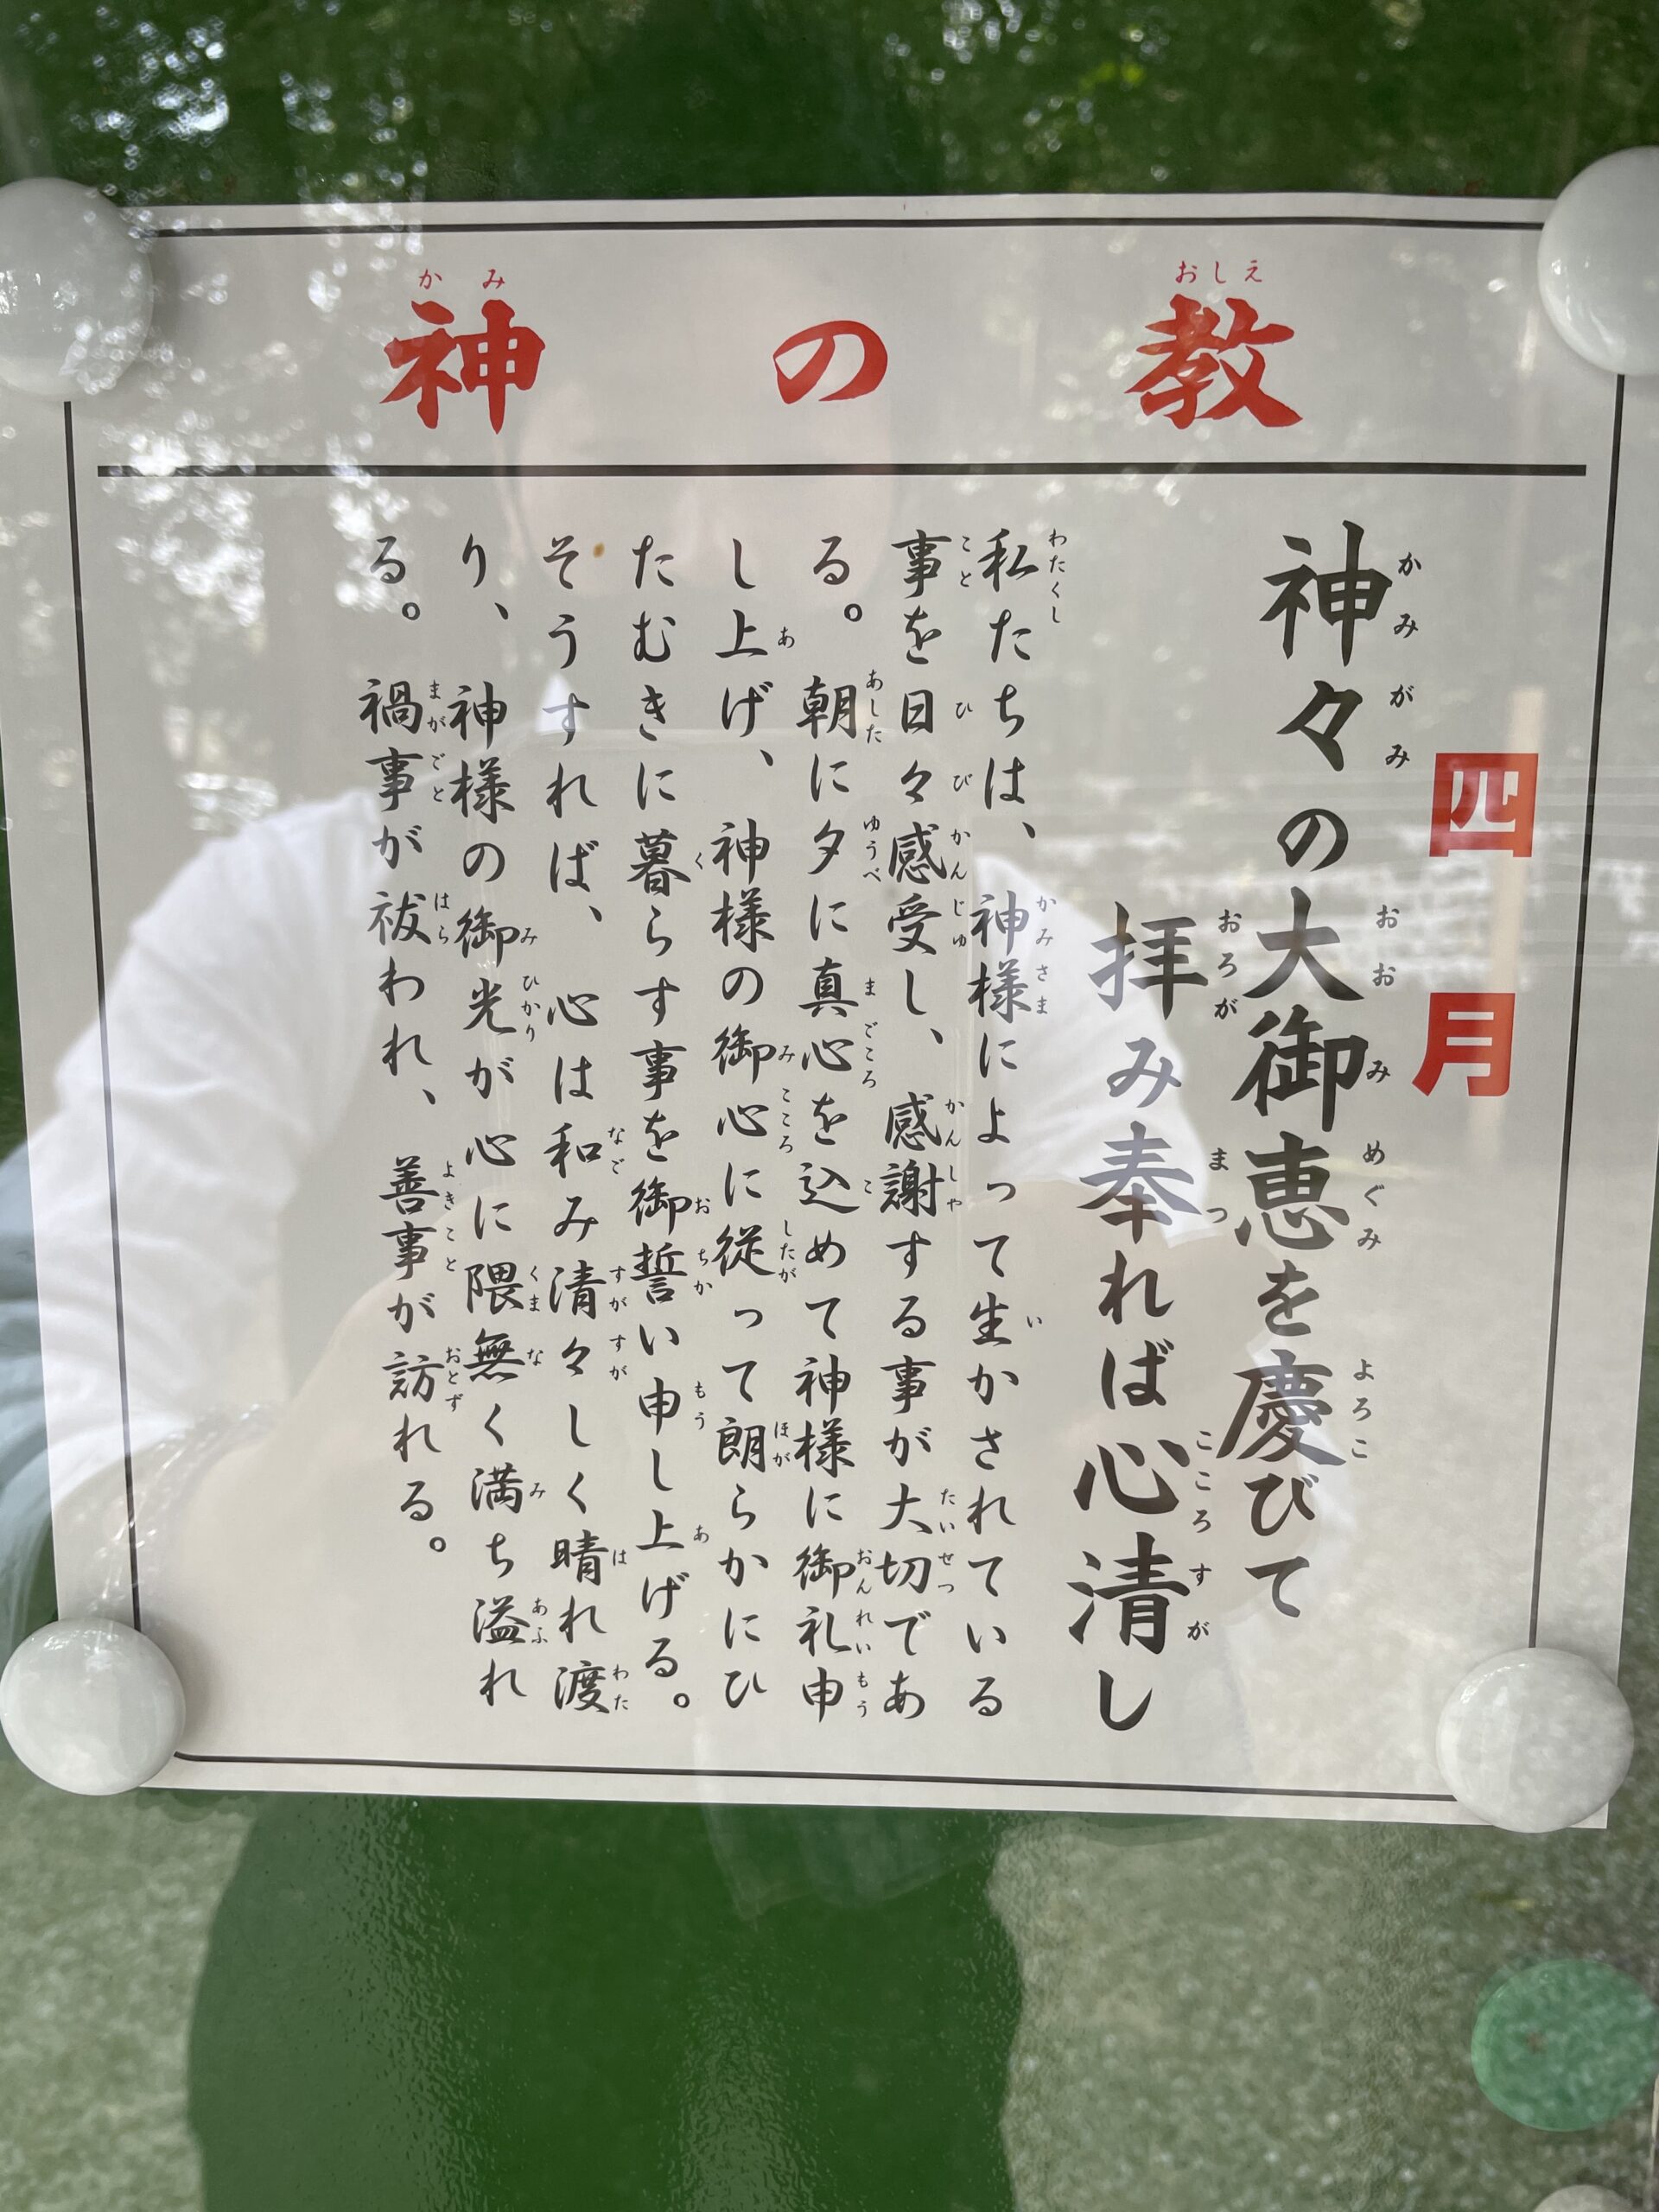 神の教
四月
神々の大御恵を慶びて
拝み奉れば心清し
私たちは、神様によって生かされている
事を日々感受し、感謝する事が大切であ
る。朝に夕に真心を込めて神様に御礼申
し上げ、神様の御心に従って朗らかにひ
たむきに暮らす事を御誓い申し上げる。
そうすれば、心は和み清々しく晴れ渡
り、神様の御光が心に隈無く満ち溢れ
る。禍事が祓われ、善事が訪れる。